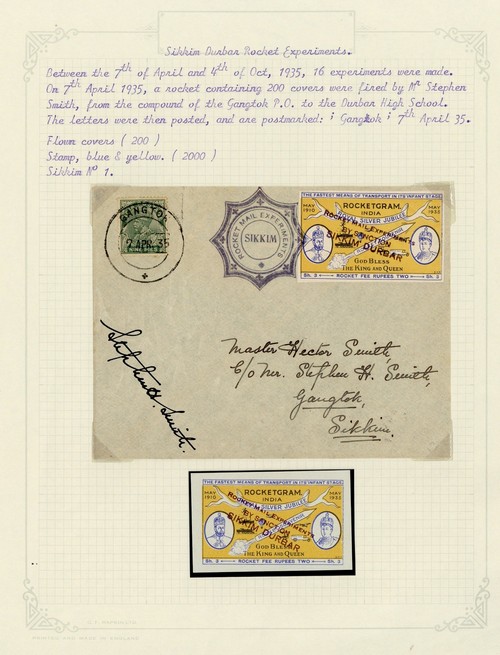 Sikkim Durbar Rocket Experiments.
Between the 7th of April and 4th of Oct, 1935, 16 experiments were made.
On 7th April 1935, a rocket containing 200 covers were fired by Mr Stephen
Smith, from the compound of the Gangtok P.O. to the Durbar High School.
The letters were then posted, and are postmarked: ; Gangtok ; 7th April 35.
Flown covers ( 200 )
Stamp, blue & yellow. ( 2000 )
Sikkim No 1.
GANGTOK
7 APR. 35
ROCKET MAIL EXPERIMENTS
SIKKIM
THE FASTEST MEANS OF TRANSPORT IN ITS INFANT STAGE
MAY 1910
ROCKETGRAM.
INDIA
MAY 1935
SILVER JUBILEE
ROCKET MAIL EXPERIMENTS
BY SANCTION
SIKKIM DURBAR
GOD BLESS
THE KING AND QUEEN
Sh. 3 ROCKET FEE RUPEES TWO Sh. 3
Stephen H. Smith.
Master Hector Smith,
C/o Mr. Stephen H. Smith,
Gangtok,
Sikkim.
THE FASTEST MEANS OF TRANSPORT IN ITS INFANT STAGE
MAY 1910
ROCKETGRAM.
INDIA
MAY 1935
SILVER JUBILEE
ROCKET MAIL EXPERIMENTS
BY SANCTION
SIKKIM DURBAR
GOD BLESS
THE KING AND QUEEN
Sh. 3 ROCKET FEE RUPEES TWO Sh. 3
PRINTED AND MADE IN ENGLAND